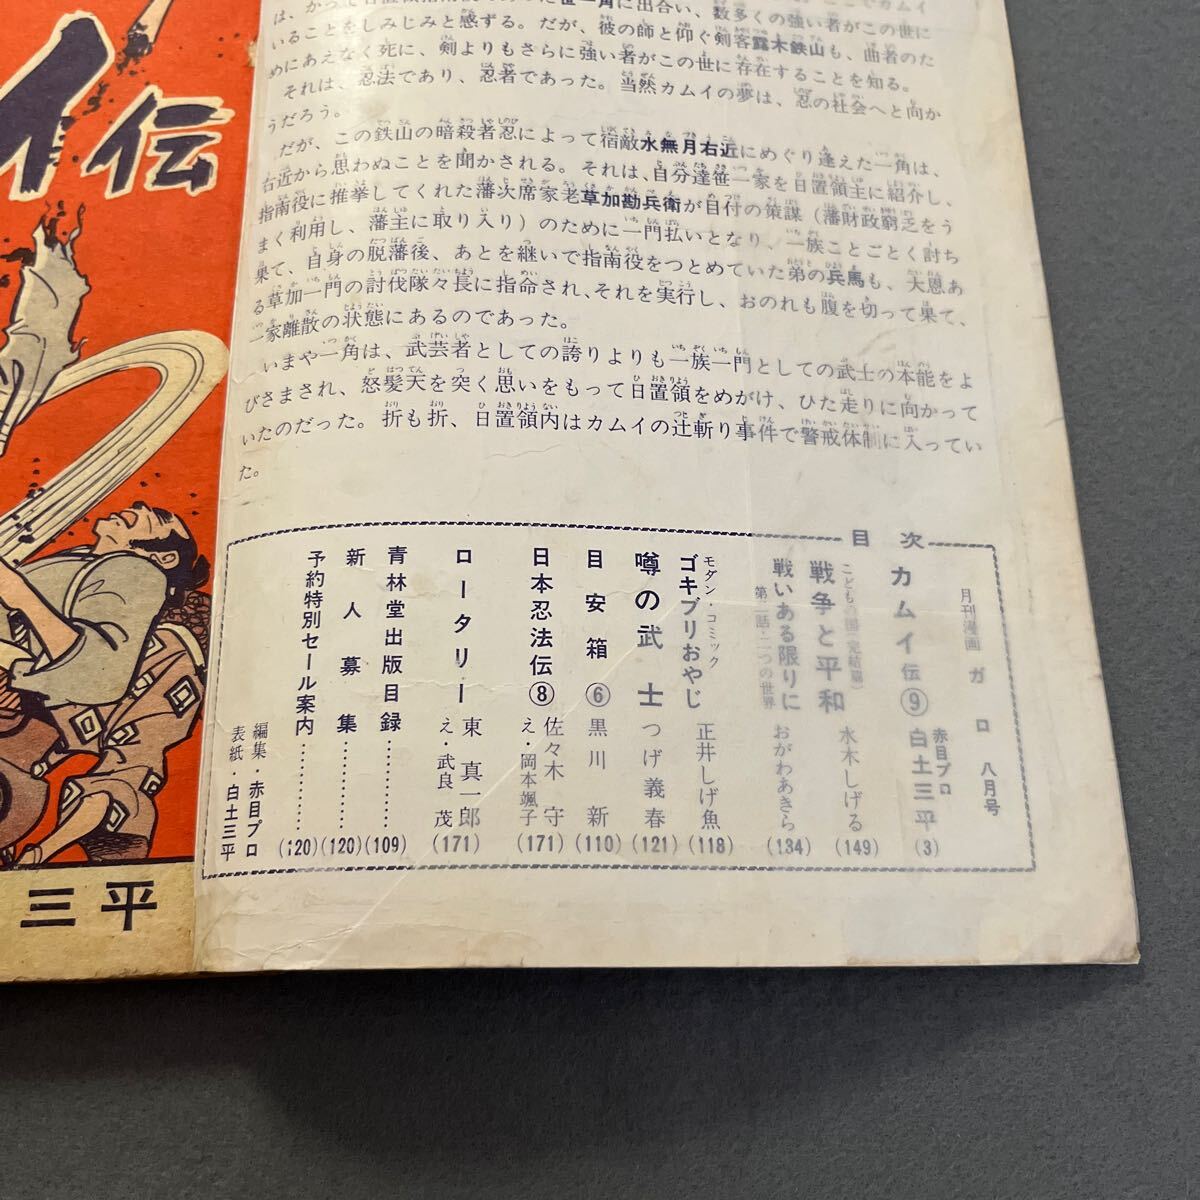 イ伝
三平
は、かつて日置
笹一角に出合い、数多くの強い者がこの世に
いることをしみじみと感ずる。だが、彼の師と仰ぐ剣客露木鉄山も、曲者のた
めにあえなく死に、剣よりもさらに強い者がこの世に存在することを知る。
それは、忍法であり、忍者であった。当然カムイの夢は、忍の社会へと向か
うだろう。
だが、この鉄山の暗殺者忍によって宿敵水無月右近にめぐり逢えた一角は、
右近から思わぬことを聞かされる。それは、自分達笹一家を日置領主に紹介し、
指南役に推挙してくれた藩次席家老草加勘兵衛が目付の策謀（藩財政窮乏をう
まく利用し、藩主に取り入り）のために一門払いとなり、一族ことごとく討ち
果て、自身の脱藩後、あとを継いで指南役をつとめていた弟の兵馬も、大恩あ
る草加一門の討伐隊々長に指命され、それを実行し、おのれも腹を切って果て、
一家離散の状態にあるのであった。
いまや一角は、武芸者としての誇りよりも一族一門としての武士の本能をよ
びさまされ、怒髪天を突く思いをもって日置領をめがけ、ひた走りに向かって
いたのだった。折も折、日置領内はカムイの辻斬り事件で警戒体制に入ってい
た。
目次
月刊漫画 ガロ 八月号
カムイ伝⑨ 赤目プロ 白土三平 (3)
こどもの国（完結篇）
戦争と平和 水木しげる (149)
戦いある限りに おがわあきら (134)
第二話・二つの世界
モダン・コミック
ゴキブリおやじ 正井しげ魚 (118)
噂の武士 つげ義春 (121)
目安箱⑥ 黒川新 (110)
日本忍法伝⑧ 佐々木守 え・岡本颯子 (171)
ロータリー 東真一郎 え・武良茂 (171)
青林堂出版目録…………(109)
新人募集…………(120)
予約特別セール案内…………(120)
編集・赤目プロ
表紙・白土三平